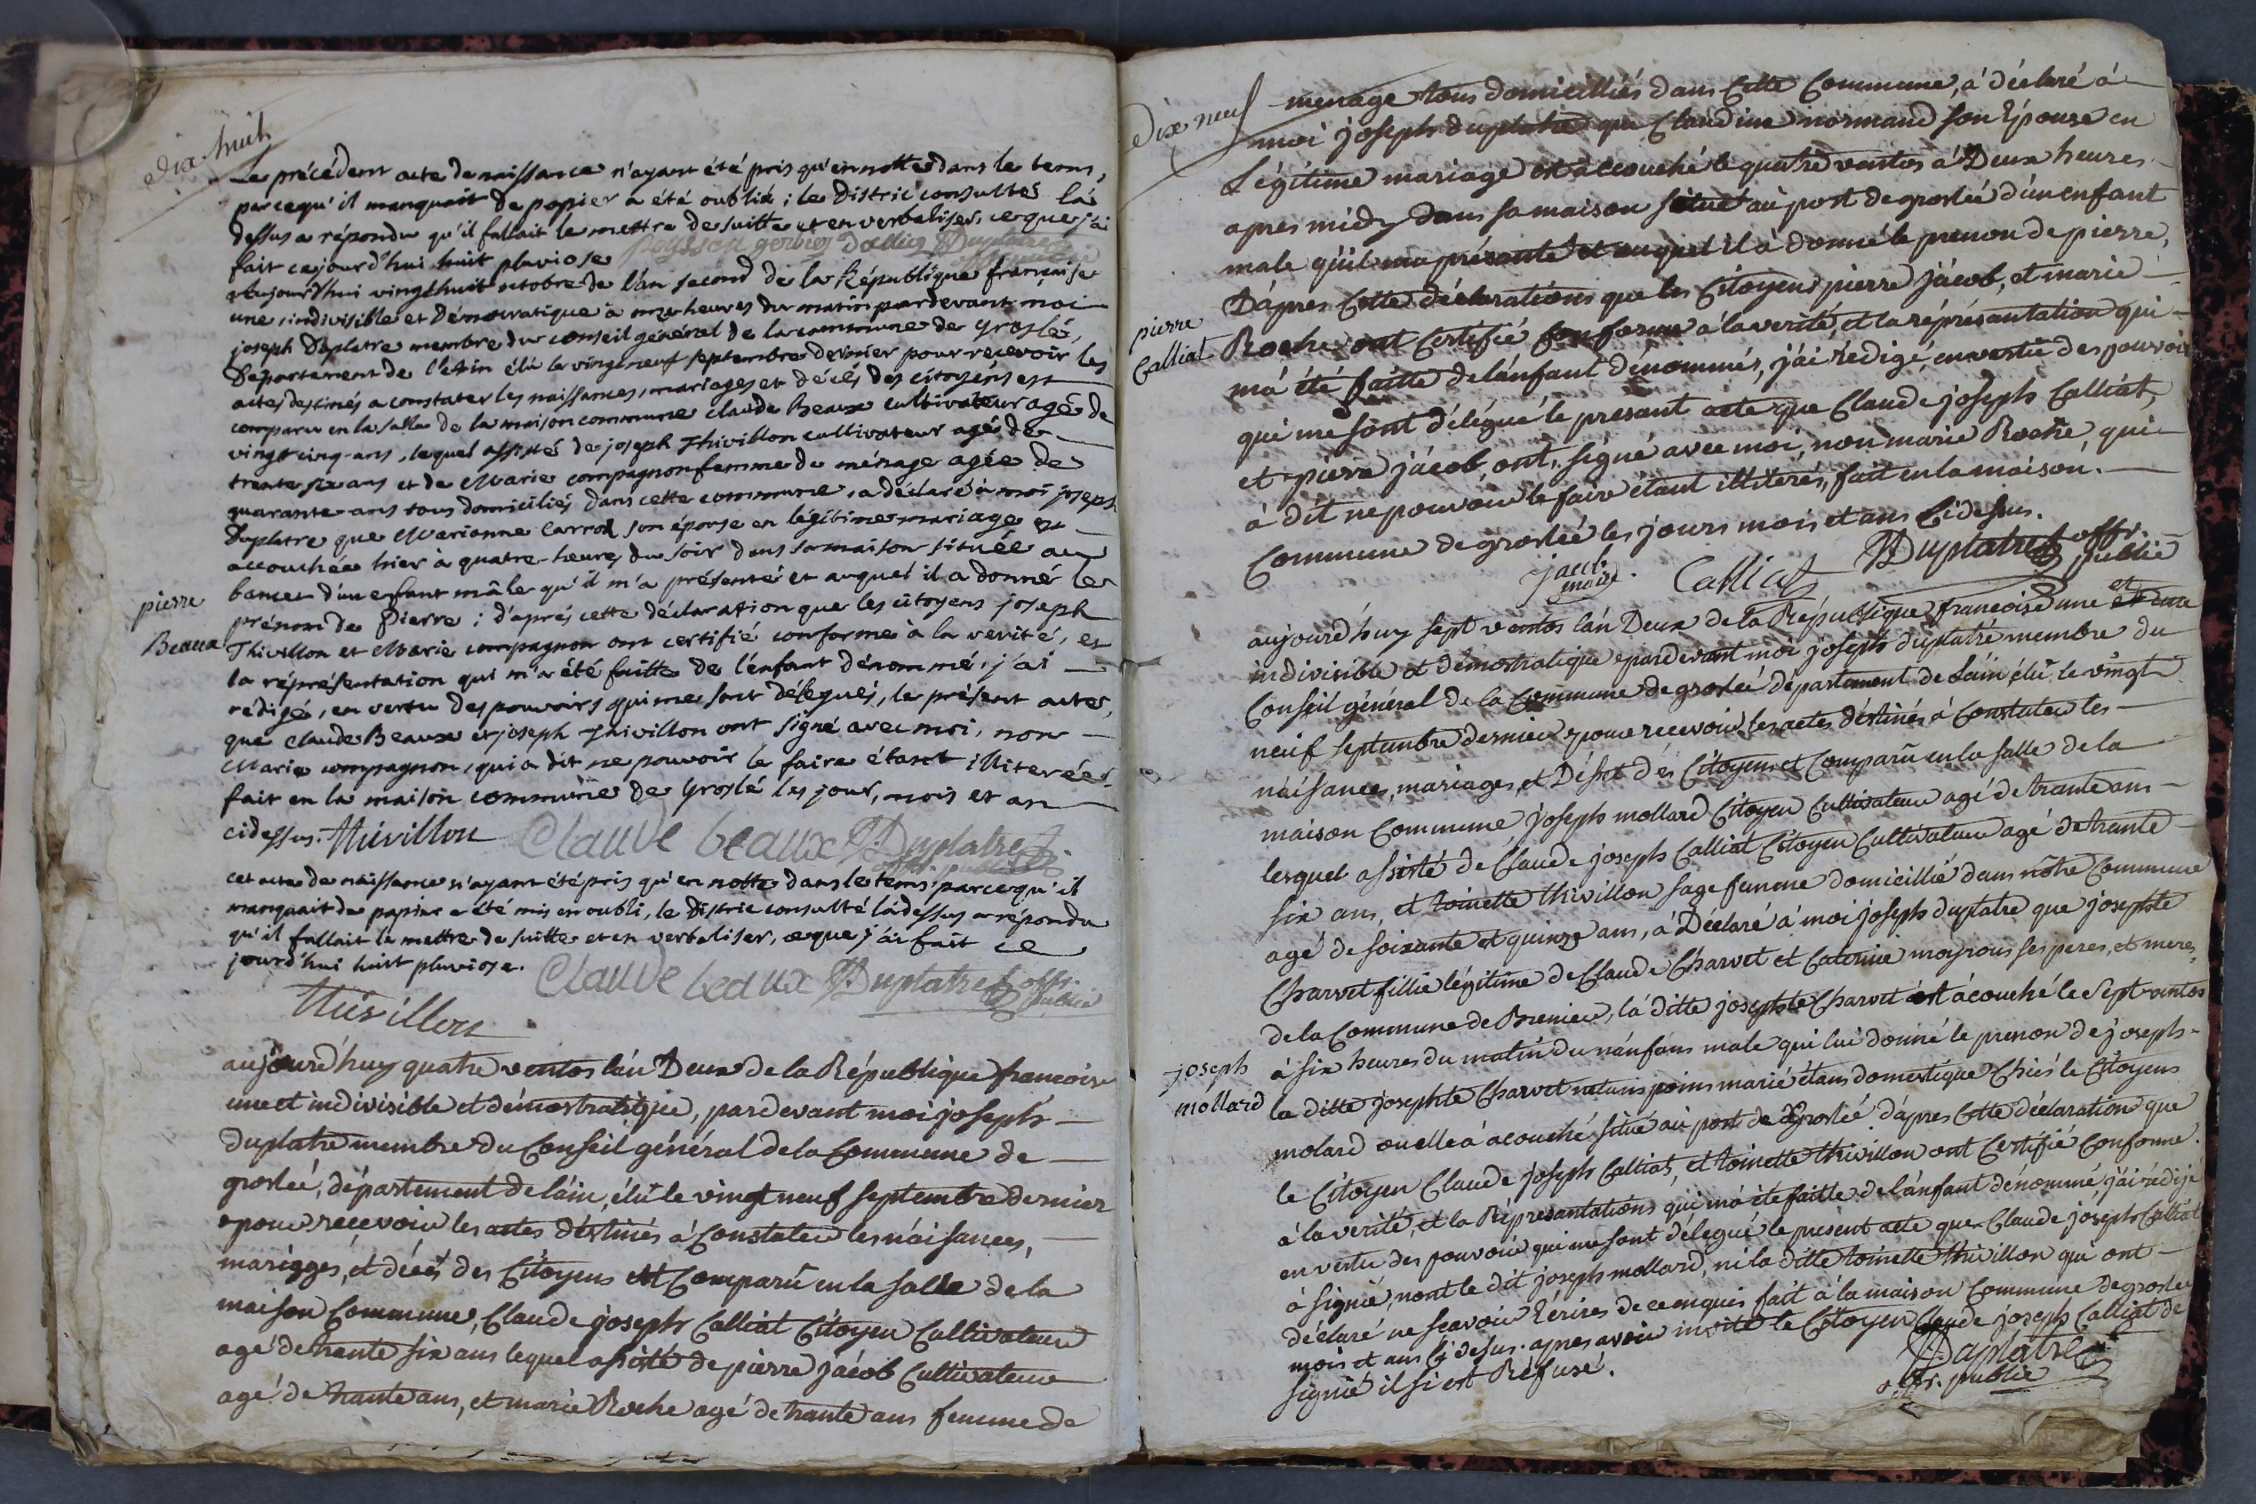 dix huit
Le précédent acte de naissance n'ayant été pris qu'en notte dans le tems,
parcequ'il manquait de papier a été oublié ; le District consulté là
dessus a répondu qu'il fallait le mettre de suitte et en verbaliser, ce que j'ai
fait cejourd'hui huit pluviose
aujourd'hui vingt huit octobre de l'an second de la République française
une, indivisible et Démocratique à onze heures du matin pardevant moi
joseph Duplatre membre du conseil général de la commune de Groslé,
Département de l'Ain élu le vingt neuf septembre dernier pour recevoir les
actes destinés a constater les naissances, mariages et décés des citoyéns est
comparu en la salle de la maison commune claude Beaux cultivateur agé de
vingt cinq ans, lequel assisté de joseph Thivillon cultivateur agé de
trente six ans et de Marie compagnon femme de ménage agée de
quarante ans tous domiciliés dans cette commune, a déclaré à moi joseph
Duplatre que Marianne Carrod son épouse en légitime mariage est
accouchée hier à quatre heures du soir dans sa maison située au
bances d'un enfant mâle qu'il m'a présenté et auquel il a donné le
pierre
Beaux
prénom de Pierre ; d'aprés cette déclaration que les citoyens joseph
Thivillon et Marie compagnon ont certifié conforme à la verité, et
la répréfentation qui m'a été faitte de l'enfant dénommé, j'ai
redigé, en vertu des pouvoirs qui me sont délegués, le présent acte,
que claude Beaux et joseph Thivillon ont signé avec moi, non
Marie compagnon, qui a dit ne pouvoir le faire étant illiterée
fait en la maison commune de Groslé les jour, mois et an
cidessus. Thivillon Claude beaux Duplatre
cet acte de naissance n'ayant été pris qu'en notte dans le tems, parcequ'il
manquait de papier a été mis en oubli, le District consulté làdessus a repondu
qu'il fallait le mettre de suitte et en verbaliser, ce que j'ai fait ce
jourd'hui huit pluviose. Claude beaux Duplatre offi. public
Thivillon
aujourd'huy quatre ventos l'an Deux de la République francoise
une et indivisible et démostratique, pardevant moi joseph
duplatre membre du Conseil général de la Commune de
groslée, département de l'ain, élu le vingt neuf septembre dernier
pour recevoir les actes déstinés à Constater les náisances,
mariages, et décés des Citoyens est Comparu en la salle de la
maison Commune, Claude joseph Calliat Citoyen Cultivateur
agé de trante six ans lequel asisté de pierre jácob Cultivateur
agé de trante ans, et marie Roche agé de trante ans femme de
dix neuf
menage tous domicilliés dans Cette Commune, à déclaré à
moi joseph duplatre que Claudine normand son Épouse en
Légitime mariage est accouché le quatre ventos à Deux heures
apres midy dans sa maison situé au port de groslée d'un enfant
male qu'il ma présanté et auquel il à donné le prenon de pierre,
D'apres Cette déclarations que les Citoyens pierre Jácob, et marie
pierre
Calliat
Roche ont Certifié Conforme à la verité, et la répresantation qui
má été faitte de lánfant dénommés, j'ai rédigé, en vertu des pouvoir
qui me sont délégué le presant acte que Claude joseph Calliat,
et pierre jácob, ont, signé avec moi, non marie Roche, qui
à dit ne pouvoir le faire étant illiterés, fait en la maison
Commune de groslée les jours mois et ans Cidessus.
jacob maire. Calliat Duplatre offi. public
aujourd'huy sept ventos l'án Deux de la République francoise une et
indivisible et démostratique pardevant moi joseph duplatre membre du
Conseil général de la Commune de groslée département de l'áin élu le vingt
neuf septembre dernier pour recevoir les actes déstinés à Constater les
náisances, mariages, et Désest dés Citoyens et Comparu en la salle de la
maison Commune joseph mollard Citoyen Cultivateur agé de trante ans
lesquel asisté de Claude joseph Calliat Citoyen Cultivateur agé de trante
six ans, et toinette thivillon sage femme domicillié dans nôtre Commune
agé de soixante et quinze ans, à Déclaré à moi joseph duplatre que josephte
Charvet fillie légitime de Claude Charvet et Caterine moyrous ses peres, et meres,
de la Commune de Brenieu, lá ditte josephte Charvet est ácouché le Sept ventos
joseph
mollard
à six heures du matin du nánfans male qui lui donné le prenon de joseph
la ditte josephte Charvet netans poins marié étans domestique Chiés le Citoyens
molard ou elle à ácouché situé au port de Groslée d'apres Cette déclaration que
le Citoyen Claude joseph Calliat, et toinette thivillon ont Certifié Conforme
à la verité, et la Répresantations qui má éte faitte de lánfant dénommé j'ai rédijé
en vertu des pouvoir qui me sont délegué le present acte que Claude joseph Calliat
à signié, nont le dit joseph mollard, ni la ditte toinette thivillon qui ont
déclaré ne scavoir Écrires de ce enquis fait à la maison Commune de groslée
mois et ans Cy desus. apres avoir invité le Citoyen Claude joseph Calliat de
signié il si est Réfusé.
Duplatre
offi. public